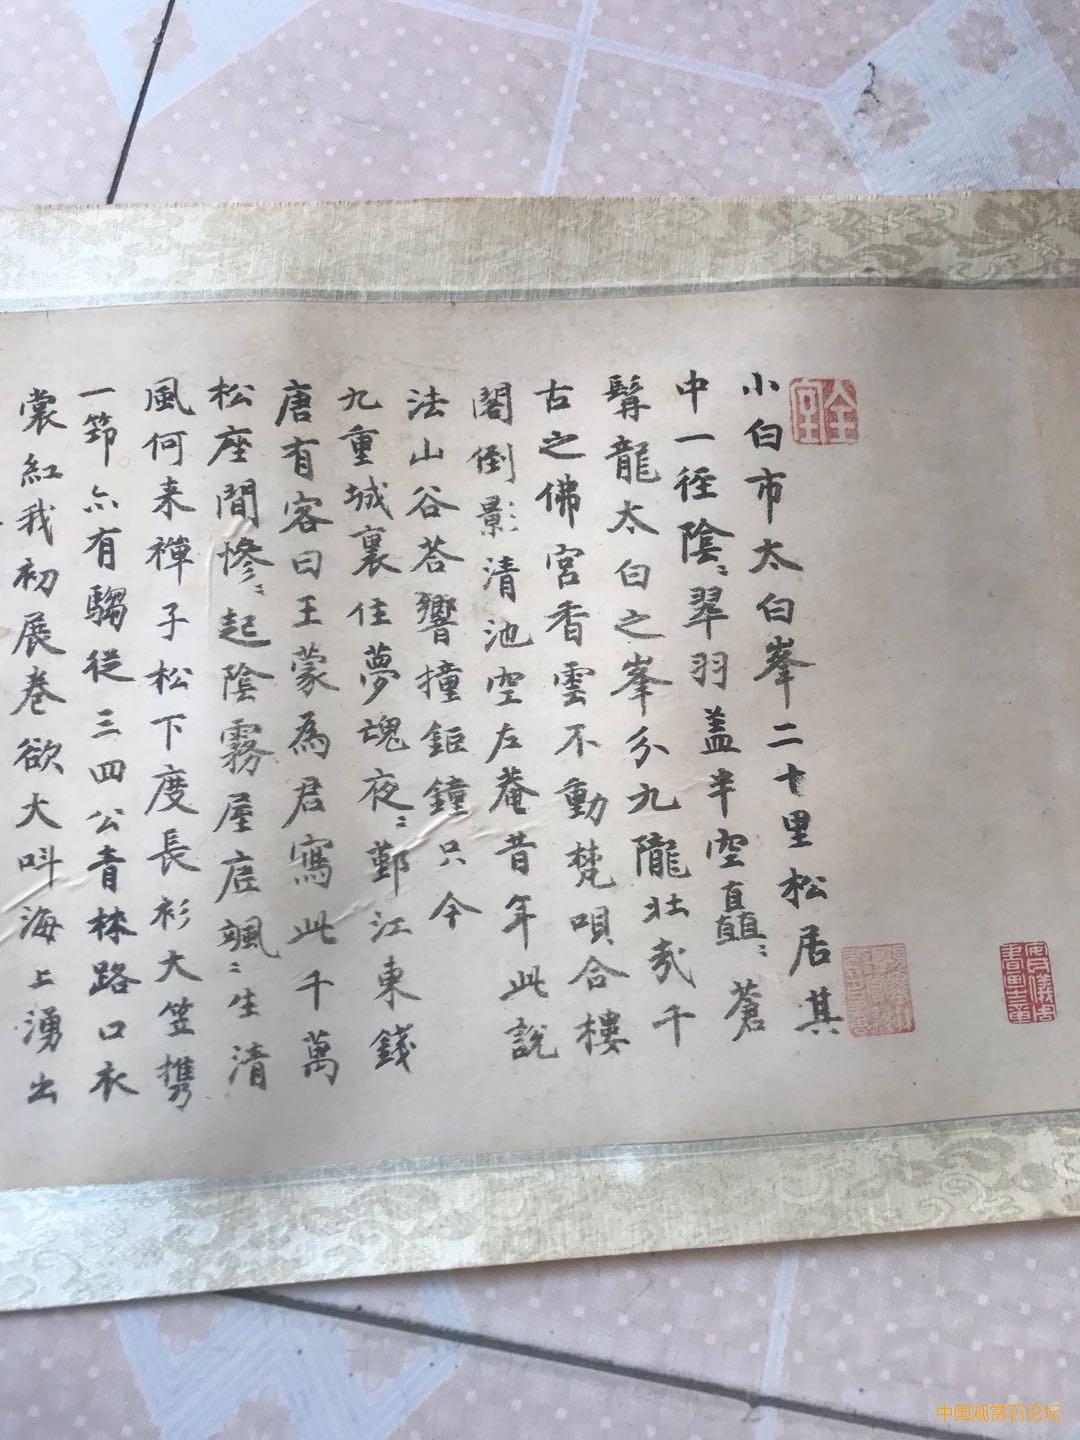 小白市太白峯二十里松居其
中一徑陰〻翠羽盖半空矗〻蒼
髯龍太白之峯分九隴壯哉千
古之佛宮香雲不動梵唄合樓
閣倒影清池空左菴昔年此說
法山谷荅響撞鉅鐘只今
九重城裏住夢魂夜〻鄞江東錢
唐有客曰王蒙為君寫此千萬
松座間慘〻起陰霧屋底颯〻生清
風何来禪子松下度長衫大笠携
一筇亦有騶從三四公青林路口衣
裳紅我初展卷欲大叫海上湧出
安儀周書畫之章
中国观赏石论坛